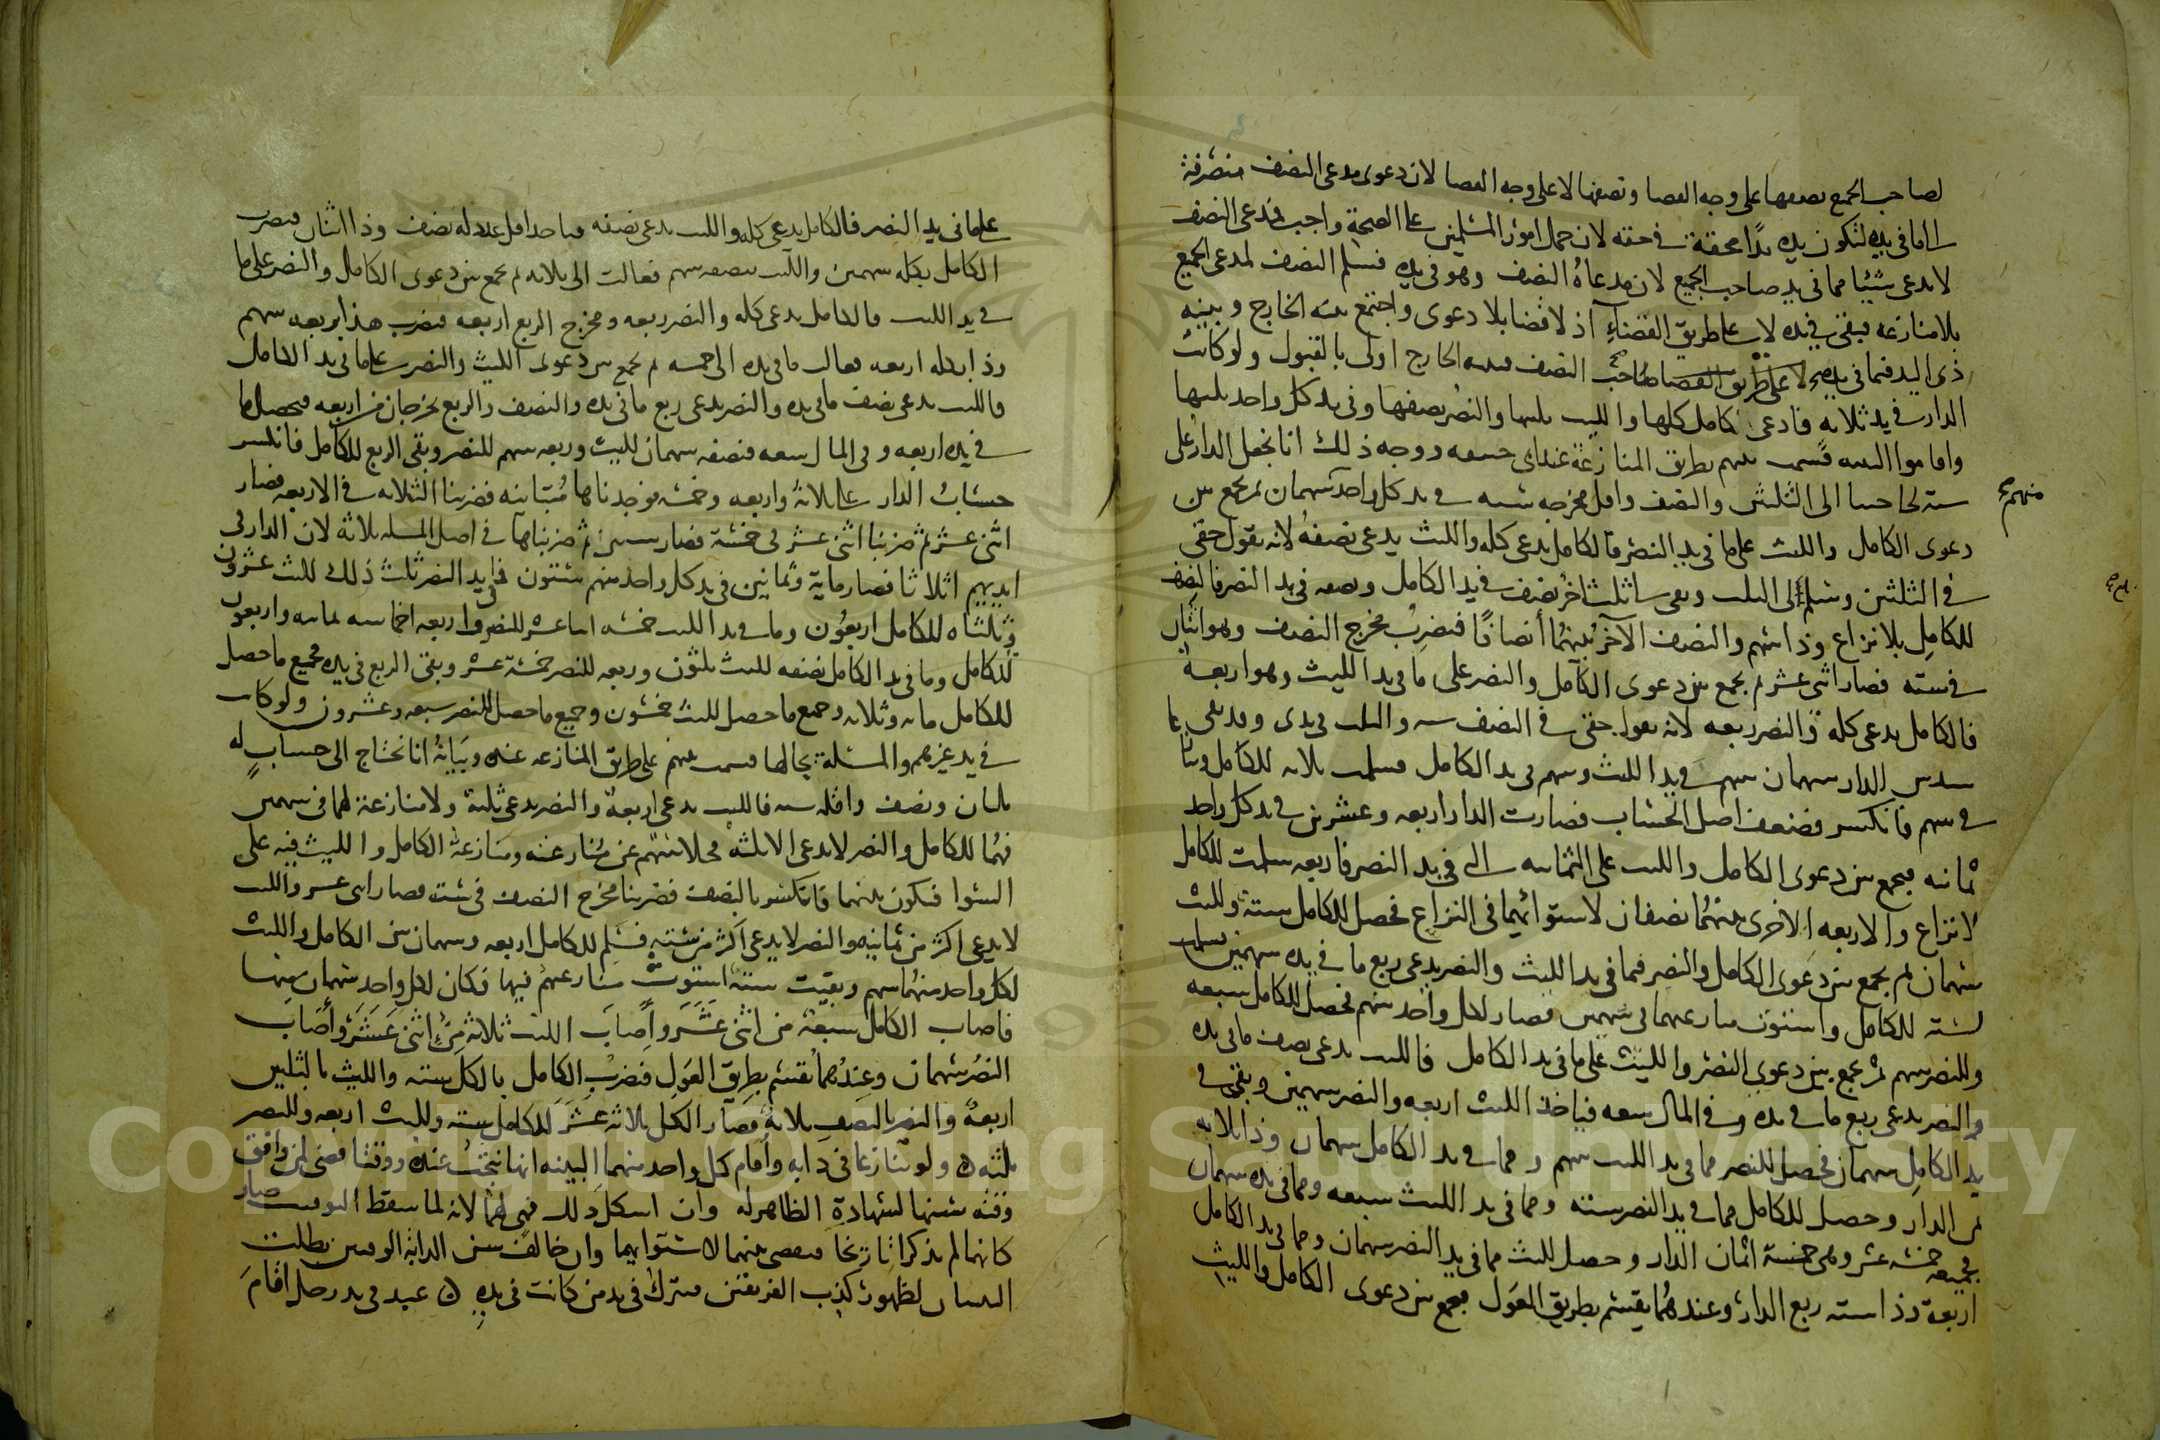 لصاحب الجميع نصفها على وجه القضا ونصفها لا على وجه القضا لان دعوى مدعى النصف منصرفة
الى ما فى يده لتكون يده يدا محقة فى حقه لان حمل امور المسلمين على الصحة واجب فمدعى النصف
لا يدعى شيئا مما فى يد صاحب الجميع لان مدعاه النصف وهو فى يده فسلم النصف لمدعى الجميع
بلا منازعه فبقى فى يده لا على طريق القضاء اذ لا قضا بلا دعوى واجتمع بينه الخارج وبينه
ذى اليد فيما فى يد صاحب النصف فبينه الخارج اولى بالقبول ولو كانت
الدار فى يد ثلاثه فادعى كامل كلها والليث ثلثيها والنصر نصفها وفى يد كل واحد ثلثها
واقاموا البينه قسمت بينهم بطريق المنازعة عند ابى حنيفه ووجه ذلك انا نجعل الدار على
ستة لحاجتنا الى الثلثين والنصف واقل مخرجه سته فى يد كل واحد سهمان ثم نجمع بين
منهم صح
دعوى الكامل والليث على ما فى يد النصر فالكامل يدعى كله والليث يدعى نصفه لانه يقول حقى
فى الثلثين وسلم لى الثلث وبقى لى ثلث اخر نصف فى يد الكامل ونصفه فى يد النصر فالنصف
للكامل بلا نزاع وذا سهم والنصف الآخر بينهما أنصافا فنضرب مخرج النصف وهو اثنان
فى سته فصار اثنى عشر ثم نجمع بين دعوى الكامل والنصر على ما فى يد الليث وهو اربعة
فالكامل يدعى كله والنصر ربعه لانه يقول حقى فى النصف سته والثلث فى يدى وقد بقى لى
سدس الدار سهمان سهم فى يد الليث وسهم فى يد الكامل فسلمت ثلاثه للكامل وتنازعا
فى سهم فانكسر فضعف اصل الحساب فصارت الدار اربعه وعشرين فى يد كل واحد
ثمانيه فنجمع بين دعوى الكامل والليث على الثمانيه التى فى يد النصر فاربعه سلمت للكامل
لا نزاع والاربعه الاخرى بينهما نصفان لاستوائهما فى النزاع فحصل للكامل ستة ولليث
سهمان ثم نجمع بين دعوى الكامل والنصر فيما فى يد الليث والنصر يدعى ربع ما فى يده سهمين سلمت
ستة للكامل واستوت منازعتهما فى سهمين فصار لكل واحد سهم فحصل للكامل سبعه
وللنصر سهم ثم نجمع بين دعوى النصر والليث على ما فى يد الكامل فالليث يدعى نصف ما فى يده
والنصر يدعى ربع ما فى يده وفى المال سعه فياخذ الليث اربعه والنصر سهمين وبقى فى
يد الكامل سهمان فحصل للنصر مما فى يد الليث سهم ومما فى يد الكامل سهمان وذا ثلاثه
من الدار وحصل للكامل مما فى يد النصر سته ومما فى يد الليث سبعه ومما فى يده سهمان
فجميعه خمسه عشر وهى خمسة اثمان الدار وحصل لليث مما فى يد النصر سهمان ومما فى يد الكامل
اربعة وذا سته ربع الدار وعندهما يقسم بطريق العول فنجمع بين دعوى الكامل والليث
على ما فى يد النصر فالكامل يدعى كله والليث يدعى نصفه فناخذ اقل عدد له نصف وذا اثنان فيضرب
الكامل بكله سهمين والليث بنصفه سهم فعالت الى ثلاثه ثم نجمع بين دعوى الكامل والنصر على ما
فى يد الليث فالكامل يدعى كله والنصر ربعه ومخرج الربع اربعه فيضرب هذا بربعه سهم
وذا بكله اربعه فعالت ما فى يده الى خمسه ثم نجمع بين دعوى الليث والنصر على ما فى يد الكامل
فالليث يدعى نصف ما فى يده والنصر يدعى ربع ما فى يده والنصف والربع يخرجان من اربعه فيحصل ما
فى يده اربعه وفى المال سعه فنصفه سهمان لليث وربعه سهم للنصر وبقى الربع للكامل فانكسر
حساب الدار على ثلاثة واربعه وخمسه فوجدناها متباينه فضربنا الثلاثه فى الاربعه فصار
اثنى عشر ثم ضربنا اثنى عشر فى خمسة فصار ستين ثم ضربناها فى اصل المسله ثلاثة لان الدار فى
ايديهم اثلاثا فصار ماية وثمانين فى يد كل واحد منهم ستون فما فى يد النصر ثلث ذلك لليث عشرون
وثلثاه للكامل اربعون وما فى يد الليث خمسه اثنا عشر للنصر واربعه اخماسه ثمانيه واربعون
للكامل وما فى يد الكامل نصفه لليث ثلثون وربعه للنصر خمسة عشر وبقى الربع فى يده فجميع ما حصل
للكامل مائه وثلاثه وجميع ما حصل لليث خمسون وجميع ما حصل للنصر سبعه وعشرون ولو كانت
فى يد غيرهم والمسئلة بحالها قسمت بينهم على طريق المنازعه عنده وبيانه انا نحتاج الى حساب له
ثلثان ونصف واقله سته فالليث يدعى اربعة والنصر يدعى ثلثة ولا منازعة لهما فى سهمين
فهما للكامل والنصر لا يدعى الا ثلثة فخلا سهم عن منازعته ومنازعة الكامل والليث فيه على
السوا فيكون بينهما فانكسر بالنصف فضربنا مخرج النصف فى سته فصار اثنى عشر والليث
لا يدعى اكثر من ثمانيه والنصر لا يدعى اكثر من سته فسلم للكامل اربعه وسهمان بين الكامل والليث
لكل واحد منهما سهم وبقيت ستة استوت منازعتهم فيها فكان لكل واحد سهمان منها
فاصاب الكامل سبعة من اثنى عشر وأصاب الليث ثلاثة من اثنى عشر وأصاب
النصر سهمان وعندهما تقسم بطريق العول فيضرب الكامل بالكل سته والليث بالثلثين
اربعة والنصر بالنصف ثلاثه فصار الكل ثلاثه عشر للكامل سته ولليث اربعه وللنصر
ثلثه ۝ ولو تنازعا فى دابه وأقام كل واحد منهما البينه انها نتجت عنده ووقتا قضى لمن وافق
وقته سنها لشهادة الظاهر له وان اشكل ذلك فهى لهما لانه لما سقط التوقيت صار
كانهما لم يذكرا تاريخا فيقضى بينهما لاستوائهما وان خالف سن الدابة الوقتين بطلت
البينتان لظهور كذب الفريقين فيترك فى يد من كانت فى يده ۝ عبد فى يد رجل اقام